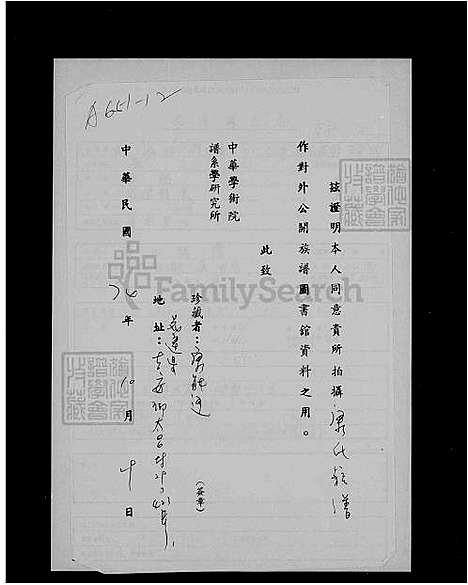 A651-12
茲證明本人同意貴所拍攝康氏族譜
作對外公開族譜圖書館資料之用。
此致
中華學術院
譜系學研究所
珍藏者：康
(簽章)
花蓮県
地址：吉安鄉太昌村
中華民國74年10月 日
FamilySearch